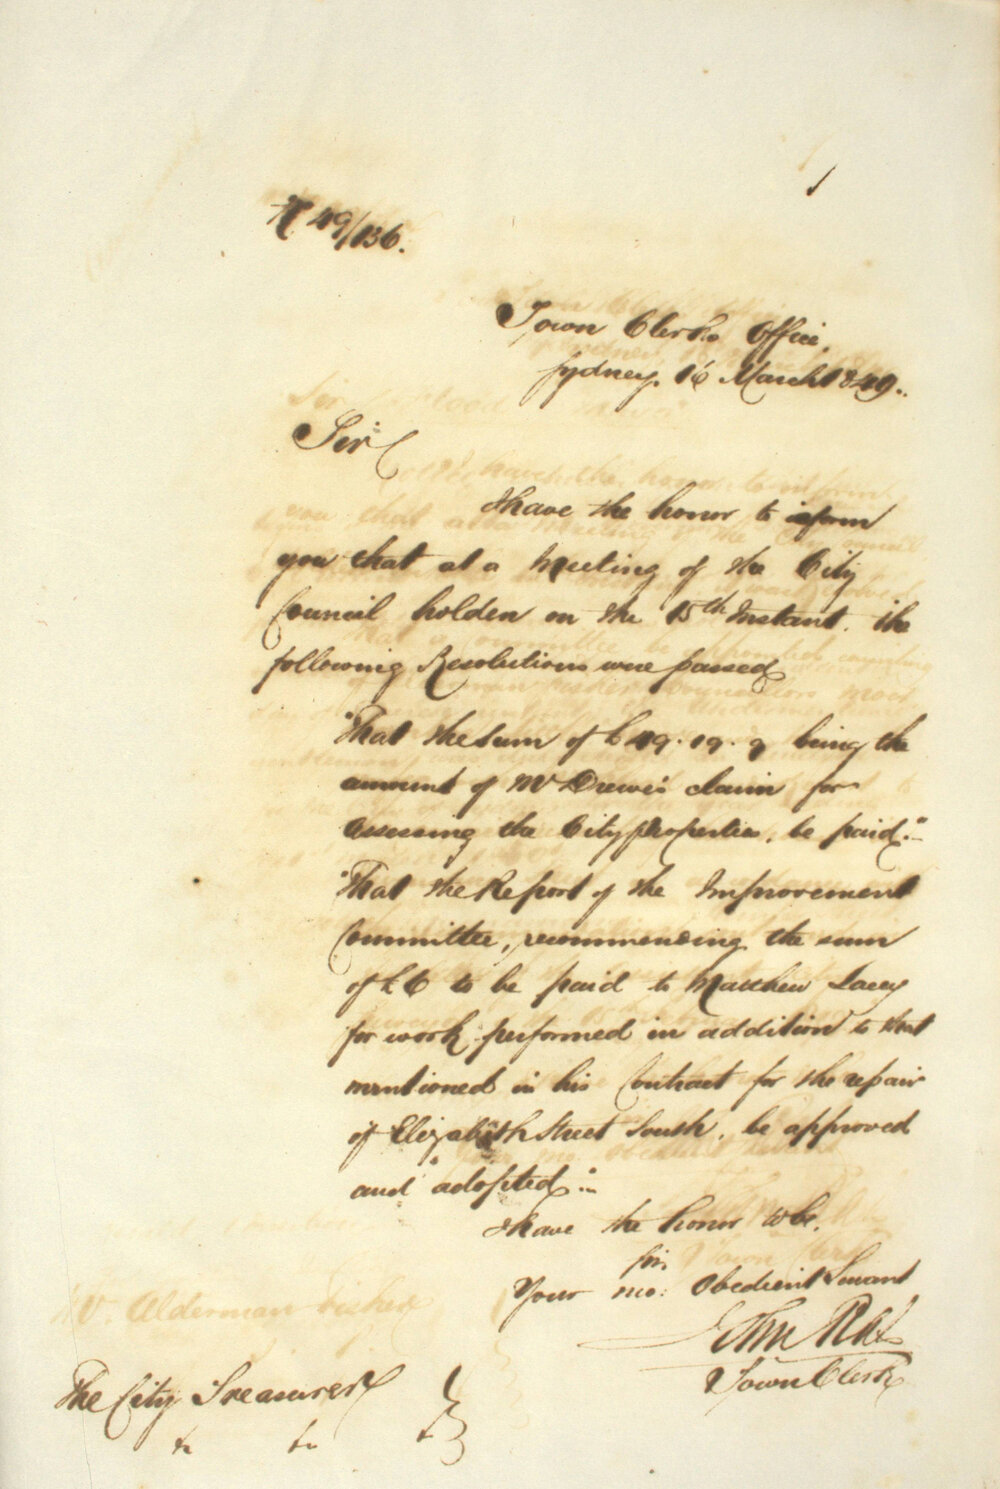 49/136.
Town Clerks Office,
Sydney. 16 March 1849.
Sir
I have the honor to inform
you that at a Meeting of the City
Council holden on the 15th Instant. the
following Resolutions were passed
"That the Sum of £49.19.9 being the
amount of Mr Drewe's claim for
assessing the City properties, be paid."
"That the Report of the Improvement
Committee, recommending the sum
of £6 to be paid to Matthew Lacey
for work performed in addition to that
mentioned in his Contract for the repair
of Elizabeth Street South, be approved
and adopted."
I have the honor to be,
Sir,
Your mo: Obedient Servant
John
Town Clerk
The City Treasurer
&c &c &c
Mr. Alderman Fisher